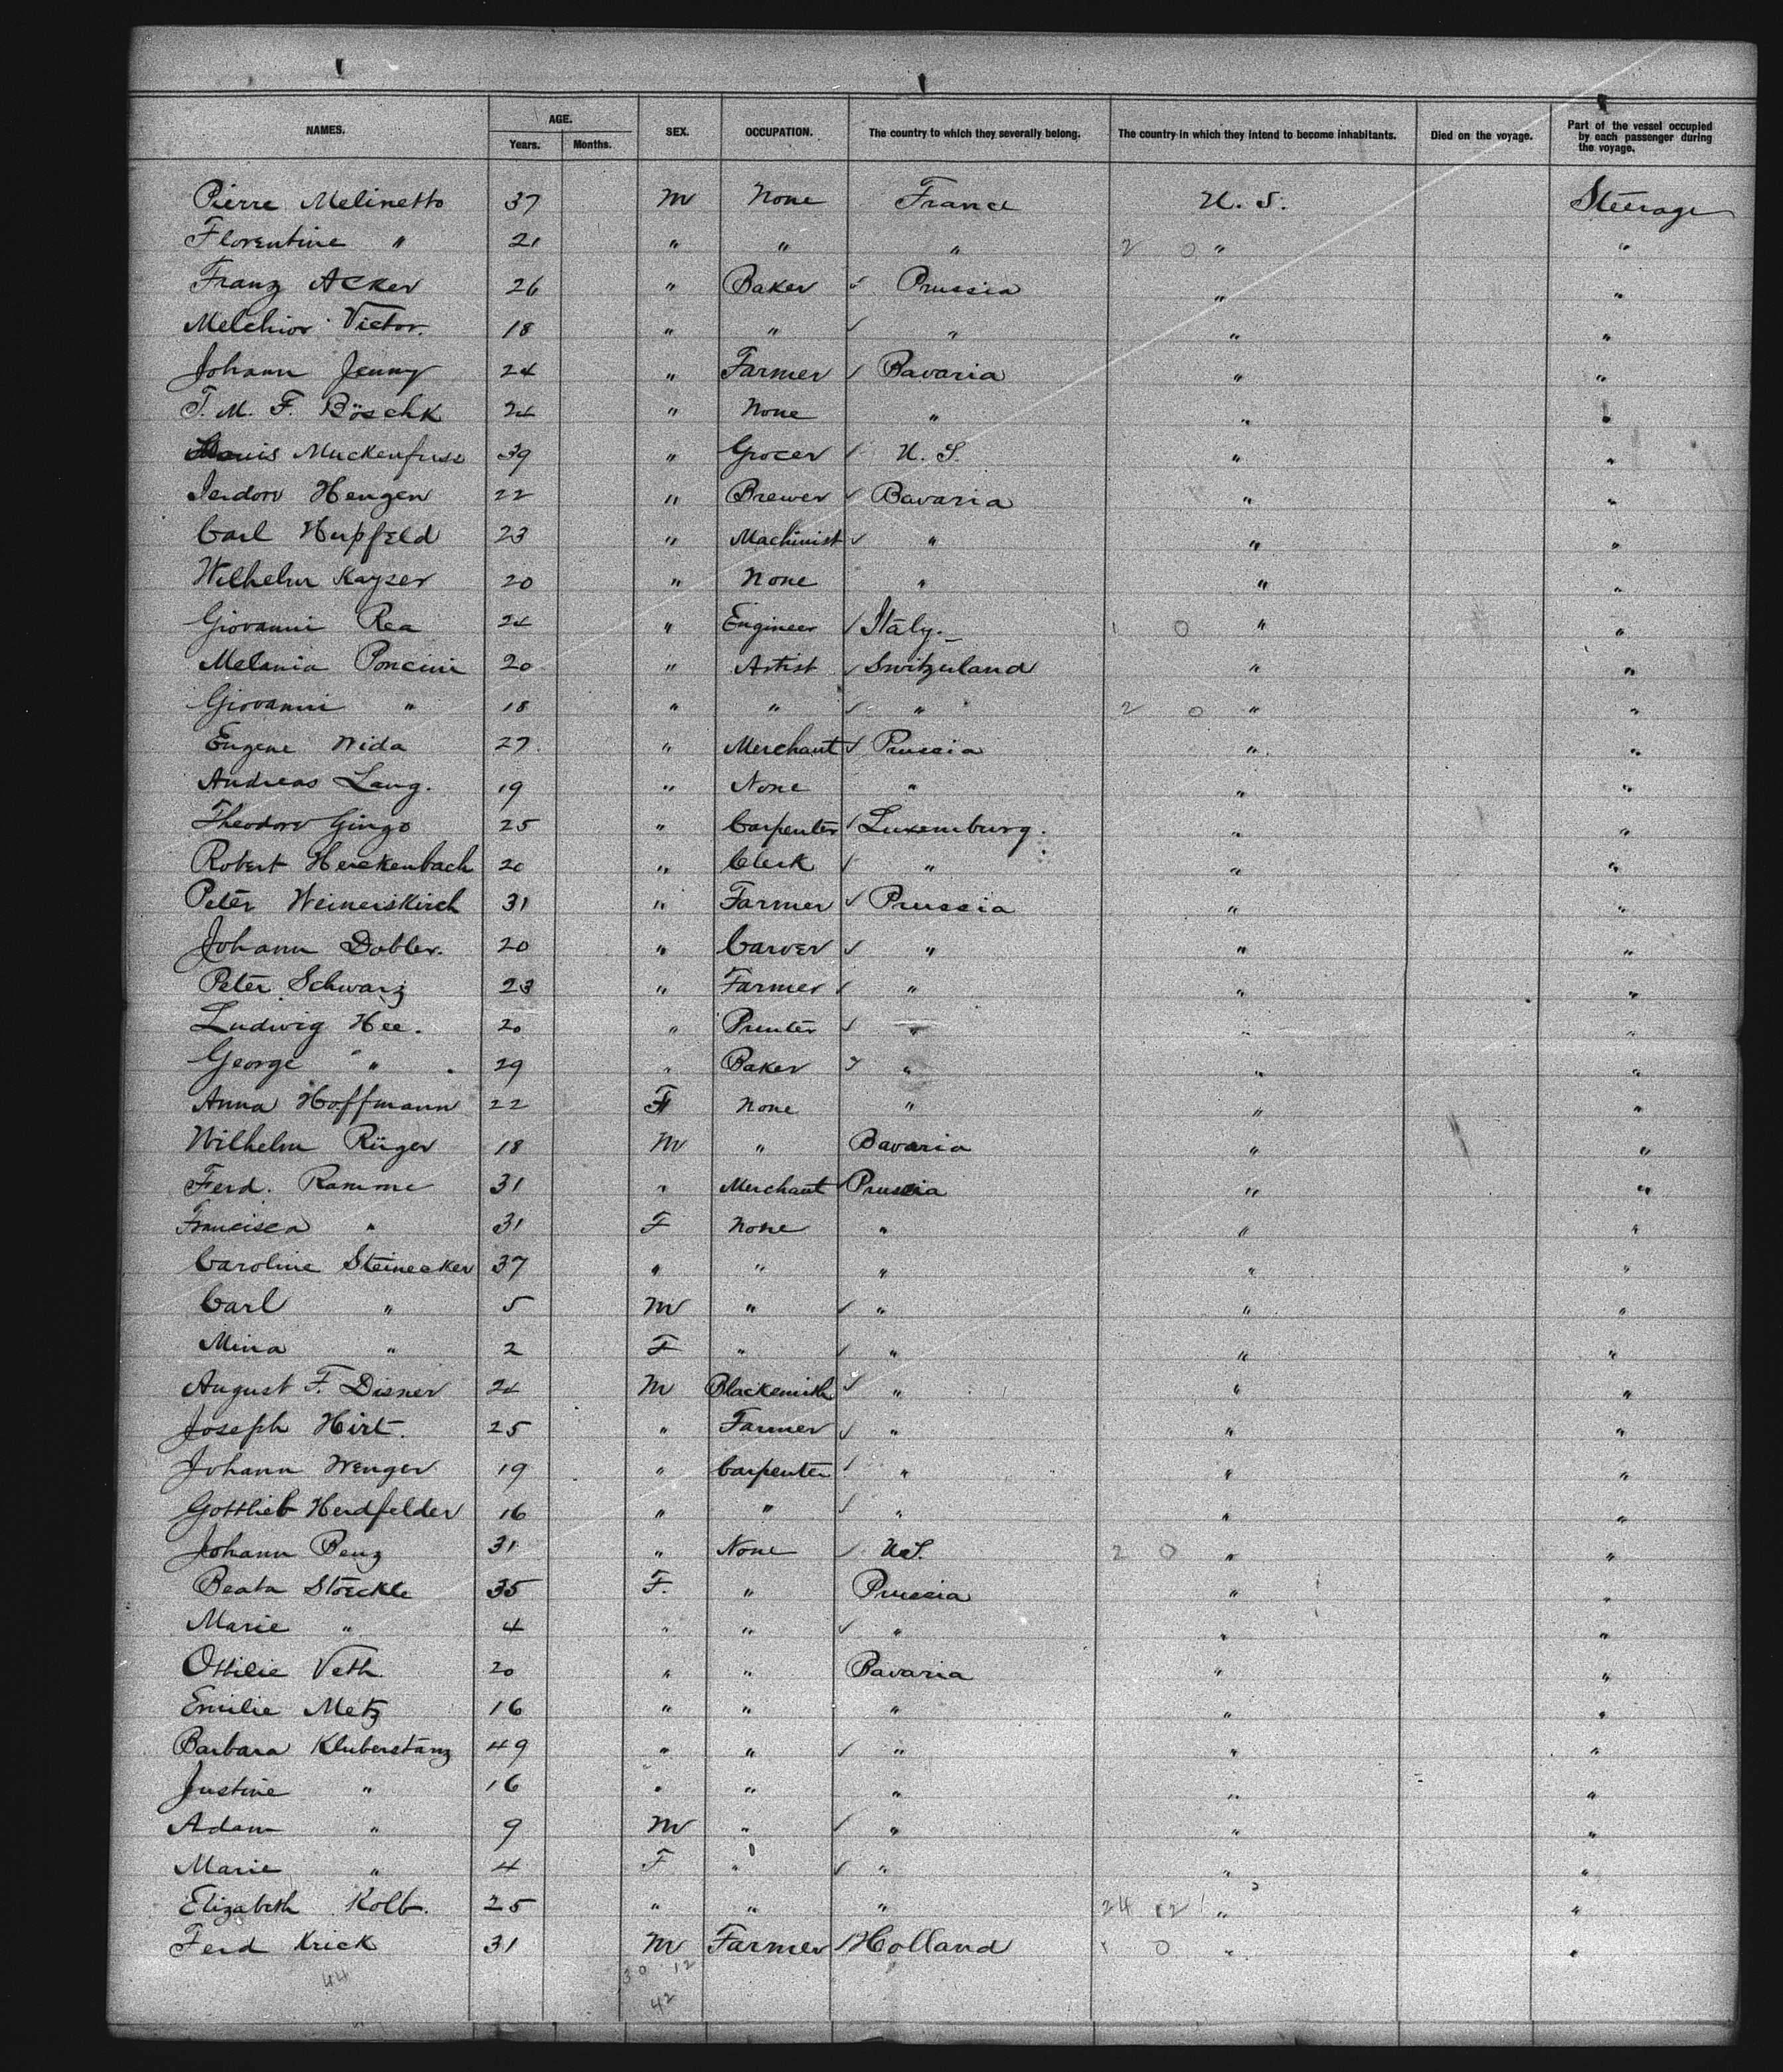 NAMES. AGE. SEX. OCCUPATION. The country to which they severally belong. The country in which they intend to become inhabitants. Died on the voyage. Part of the vessel occupied by each passenger during the voyage.
Years. Months.
Pierre Melinetto 37 M None France U. S. Steerage
Florentine " 21 " " " 2 0 " "
Franz Acker 26 " Baker ✓ Prussia " "
Melchior Victor. 18 " " ✓ " " "
Johann Jenny 24 " Farmer ✓ Bavaria " "
T. M. F. Böschk 24 " None " " "
Louis Muckenfuss 39 " Grocer ✓ U. S. " "
Isidor Hengen 22 " Brewer ✓ Bavaria " "
Carl Hupfeld 23 " Machinist ✓ " " "
Wilhelm Kayser 20 " None " " "
Giovanni Rea 24 " Engineer ✓ Italy. 1 0 " "
Melania Poncini 20 " Artist ✓ Switzerland " "
Giovanni " 18 " " ✓ " 2 0 " "
Eugene Wida 27 " Merchant ✓ Prussia " "
Andreas Lang. 19 " None " " "
Theodor Gingo 25 " Carpenter ✓ Luxemburg. " "
Robert Herkenbach 20 " Clerk ✓ " " "
Peter Weinerskirch 31 " Farmer ✓ Prussia " "
Johann Dobler. 20 " Carver ✓ " " "
Peter Schwarz 23 " Farmer ✓ " " "
Ludwig Hee. 20 " Printer ✓ " " "
George " 29 " Baker ✓ " " "
Anna Hoffmann 22 F None " " "
Wilhelm Rüger 18 M " Bavaria " "
Ferd. Ramme 31 " Merchant ✓ Prussia " "
Francisca " 31 F None " " "
Caroline Steinecker 37 " " " " "
Carl " 5 M " ✓ " " "
Mina " 2 F " ✓ " " "
August F. Disner 24 M Blacksmith ✓ " " "
Joseph Hirt. 25 " Farmer ✓ " " "
Johann Wenger 19 " Carpenter ✓ " " "
Gottlieb Herdfelder 16 " " ✓ " " "
Johann Benz 31 " None ✓ U.S. 2 0 " "
Beata Störckle 35 F. " Prussia " "
Marie " 4 " " ✓ " " "
Ottilie Veth 20 " " Bavaria " "
Emilie Metz 16 " " " " "
Barbara Kluberstanz 49 " " ✓ " " "
Justine " 16 " " " " "
Adam " 9 M " ✓ " " "
Marie " 4 F " ✓ " " "
Elizabeth Kolb. 25 " " " 24 12 " "
Ferd Krick 31 M Farmer ✓ Holland 1 0 " "
44 30 12
42